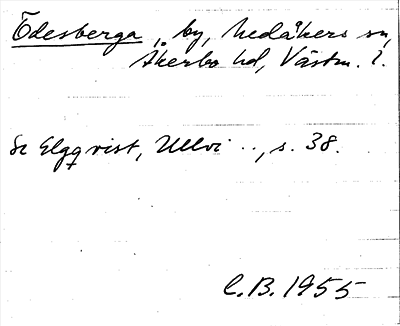 Ödesberga, by, Medåkers sn,
Åkerbo hd, Västm. l.
Se Elgqvist, Ullvi .., s. 38.
C.B. 1955